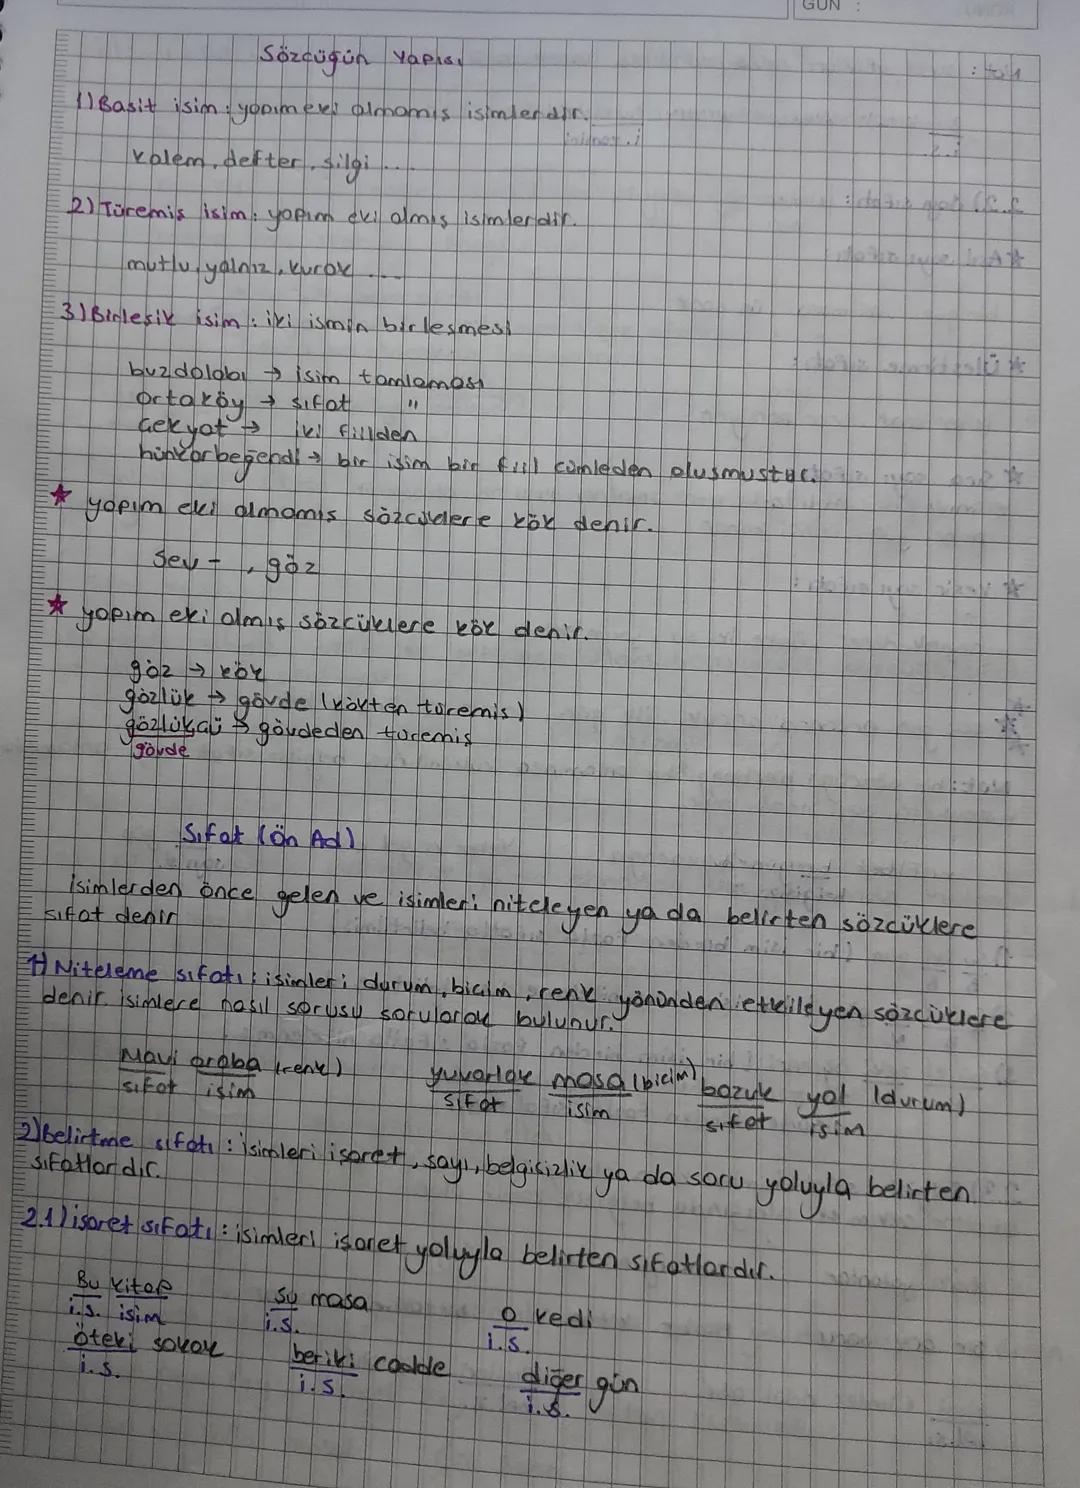 GÜN :
Sözcüğün Yapısı
1) Basit isim : yapım eki almamış isimlerdir.
kalem, defter, silgi ....
2) Türemiş isim : yapım eki almış isimlerdir.
mutlu, yalnız, kurak ....
3) Birleşik isim : iki ismin birleşmesi
buzdolabı → isim tamlaması
Ortaköy → sıfat "
Çekyat → iki fiilden
hünkarbeğendi → bir isim bir fiil cümleden oluşmuştur.
★ yapım eki almamış sözcüklere kök denir.
Sev - , göz
★ yapım eki almış sözcüklere kök denir.
göz → kök
gözlük → gövde (kökten türemiş)
gözlükçü → gövdeden türemiş
gövde
Sıfat (Ön Ad)
İsimlerden önce gelen ve isimleri niteleyen ya da belirten sözcüklere
sıfat denir
1) Niteleme sıfatı : isimleri durum, biçim, renk yönünden etkileyen sözcüklere
denir. isimlere nasıl sorusu sorularak bulunur.
Mavi araba (renk) yuvarlak masa (biçim) bozuk yol (durum)
sıfat isim sıfat isim sıfat isim
2) Belirtme sıfatı : isimleri işaret, sayı, belgisizlik ya da soru yoluyla belirten
sıfatlardır.
2.1) işaret sıfatı : isimleri işaret yoluyla belirten sıfatlardır.
Bu kitap şu masa o kedi
i.s. isim i.s. i.s.
öteki sokak beriki cadde diğer gün
i.s. i.s. i.s.